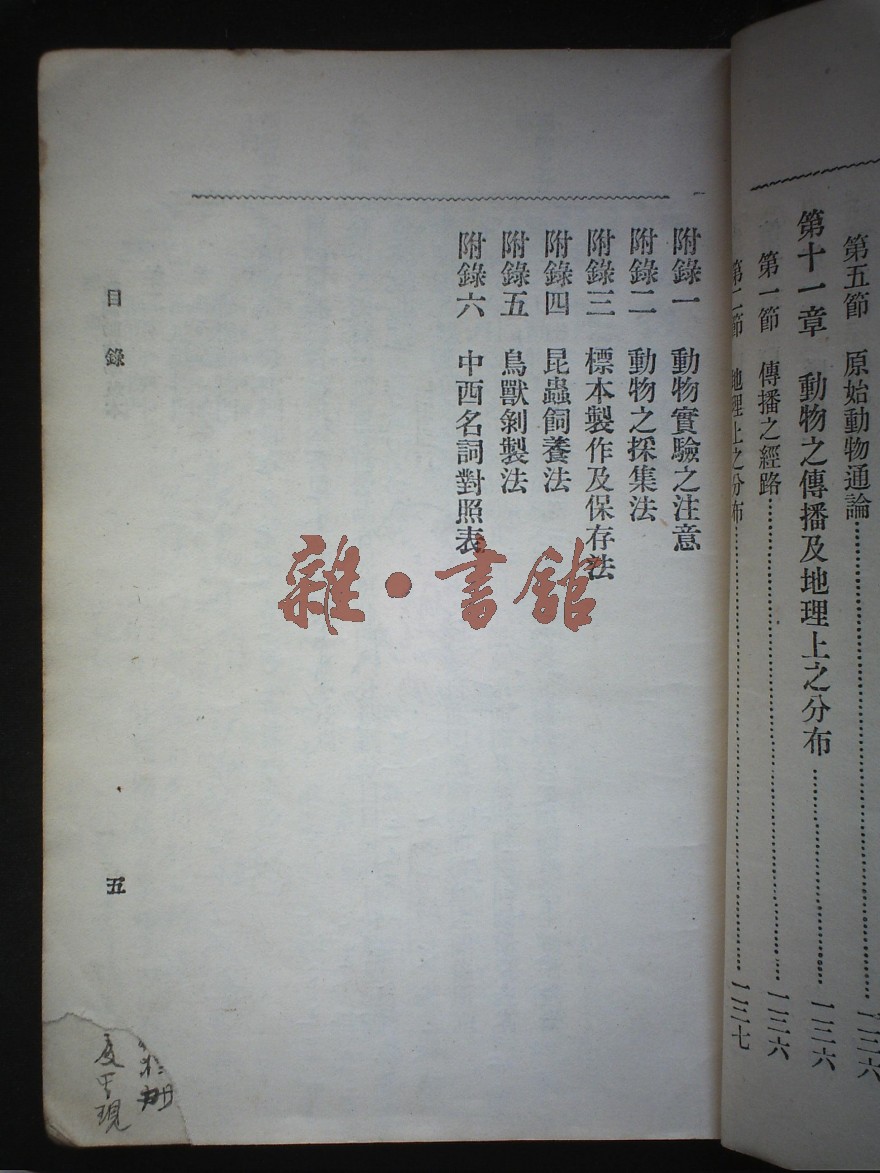 第五節　原始動物通論…………一三六
第十一章　動物之傳播及地理上之分布…………一三六
第一節　傳播之經路…………一三六
第二節　地理上之分布…………一三七
附錄一　動物實驗之注意
附錄二　動物之採集法
附錄三　標本製作及保存法
附錄四　昆蟲飼養法
附錄五　鳥獸剝製法
附錄六　中西名詞對照表
目錄
五
雜·書館